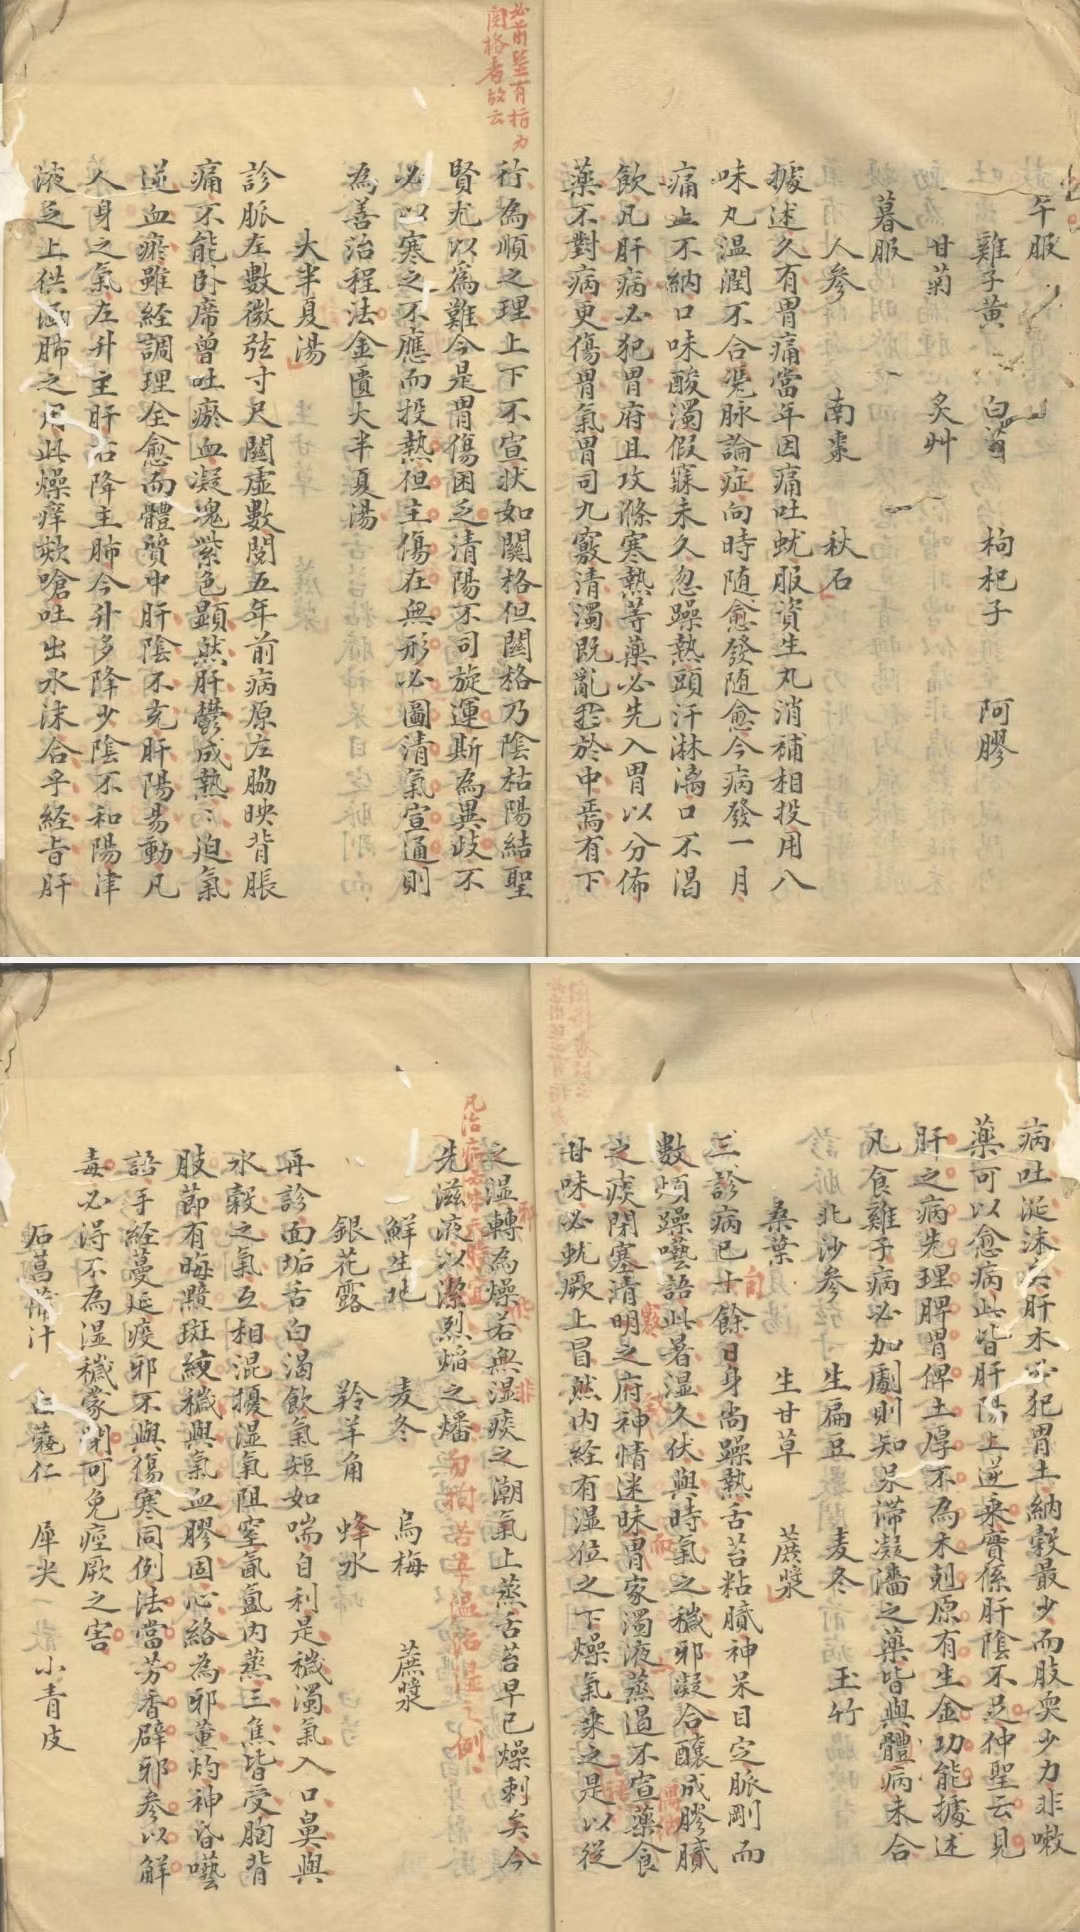 午服
雞子黃 白 枸杞子 阿膠
甘菊 炙艸
暮服
人參 南棗 秋石
據述久有胃痛當年因痛吐蚘服資生丸消補相投用八
味丸溫潤不合凭脉論症向時随愈發随愈今病發一月
痛止不納口味酸濁假寐未久忽躁熱頭汗淋漓口不渴
飲凡肝病必犯胃府且攻滌寒熱等藥必先入胃以分佈
藥不對病更傷胃氣胃司九竅清濁既亂於中焉有下
必前醫有指為
関格者故云
行為順之理上下不宣狀如関格但関格乃陰枯陽結聖
賢尤以為難今是胃傷困乏清陽不司旋運斯為異歧不
必以寒之不應而投熱徂主傷在無形必圖清氣宣通則
為善治程法金匱大半夏湯
大半夏湯
診脈左數微弦寸尺関虛數閱五年前病原左脇映背脹
痛不能卧席曾吐瘀血凝塊紫色顯然肝鬱成熱ニ迫氣
逆血瘀雖經調理全愈而體質中肝陰不充肝陽易動凡
人身之氣左升主肝右降主肺今升多降少陰不和陽津
液乏上供涵肺之用此燥痒欬嗆吐出水沫合乎経旨肝
病吐涎沫矣肝木必犯胃土納穀最少而肢䎡少力非嗽
藥可以愈病此皆肝陽上逆乘實係肝陰不足仲聖云見
肝之病先理脾胃俾土厚不為木剋原有生金功能據述
凡食雞子病必加劇則知呆滯凝濇之藥皆與體病未合
北沙參 生扁豆 麦冬 玉竹
桑葉 生甘草 蔗漿
三診病已十餘日身尚躁熱舌苔粘膩神呆目定脈剛而
數煩躁囈語此暑湿久伏與時氣之穢邪凝合釀成膠膩
之痰閉塞清明之府神情迷昧胃家濁液蒸遏不宣藥食
甘味必蚘厥上冒然内経有湿位之下燥氣乘之是以従
之湿轉為燥若無湿痰之潮氣上蒸舌苔早已燥刺矣今
凡治病 勿拘苦辛溫治湿之例
先滋液以潔烈焰之燔
鮮生地 麦冬 烏梅 蔗漿
銀花露 羚羊角 蜂水
再診面垢舌白渴飲氣短如喘自利是穢濁氣入口鼻與
水穀之氣互相混擾湿氣阻窒氤氳内蒸三焦皆受胸背
肢節有晦黶斑紋穢與氣血膠固心絡為邪薰灼神昏囈
語手経蔓延疫邪不與傷寒同例法當芳香辟邪参以解
毒必淂不為湿穢蒙閉可免痙厥之害
石菖蒲汁 蔻仁 犀尖 小青皮